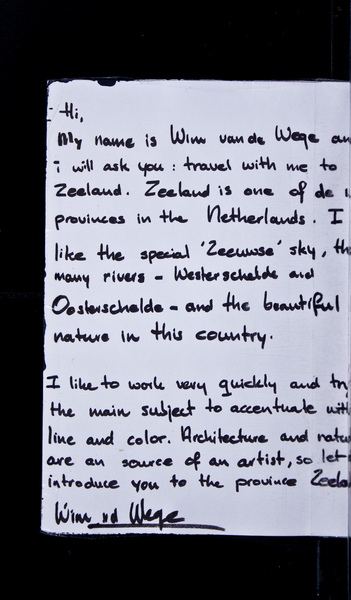 Hi,
My name is Wim van de Wege an
i will ask you : travel with me to
Zeeland. Zeeland is one of de
provinces in the Netherlands. I
like the special 'Zeeuwse' sky, th
many rivers - Westerschelde and
Oosterschelde - and the beautiful
nature in this country.
I like to work very quickly and try
the main subject to accentuate with
line and color. Architecture and natu
are an source of an artist, so let
introduce you to the province Zeela
Wim vd Wege